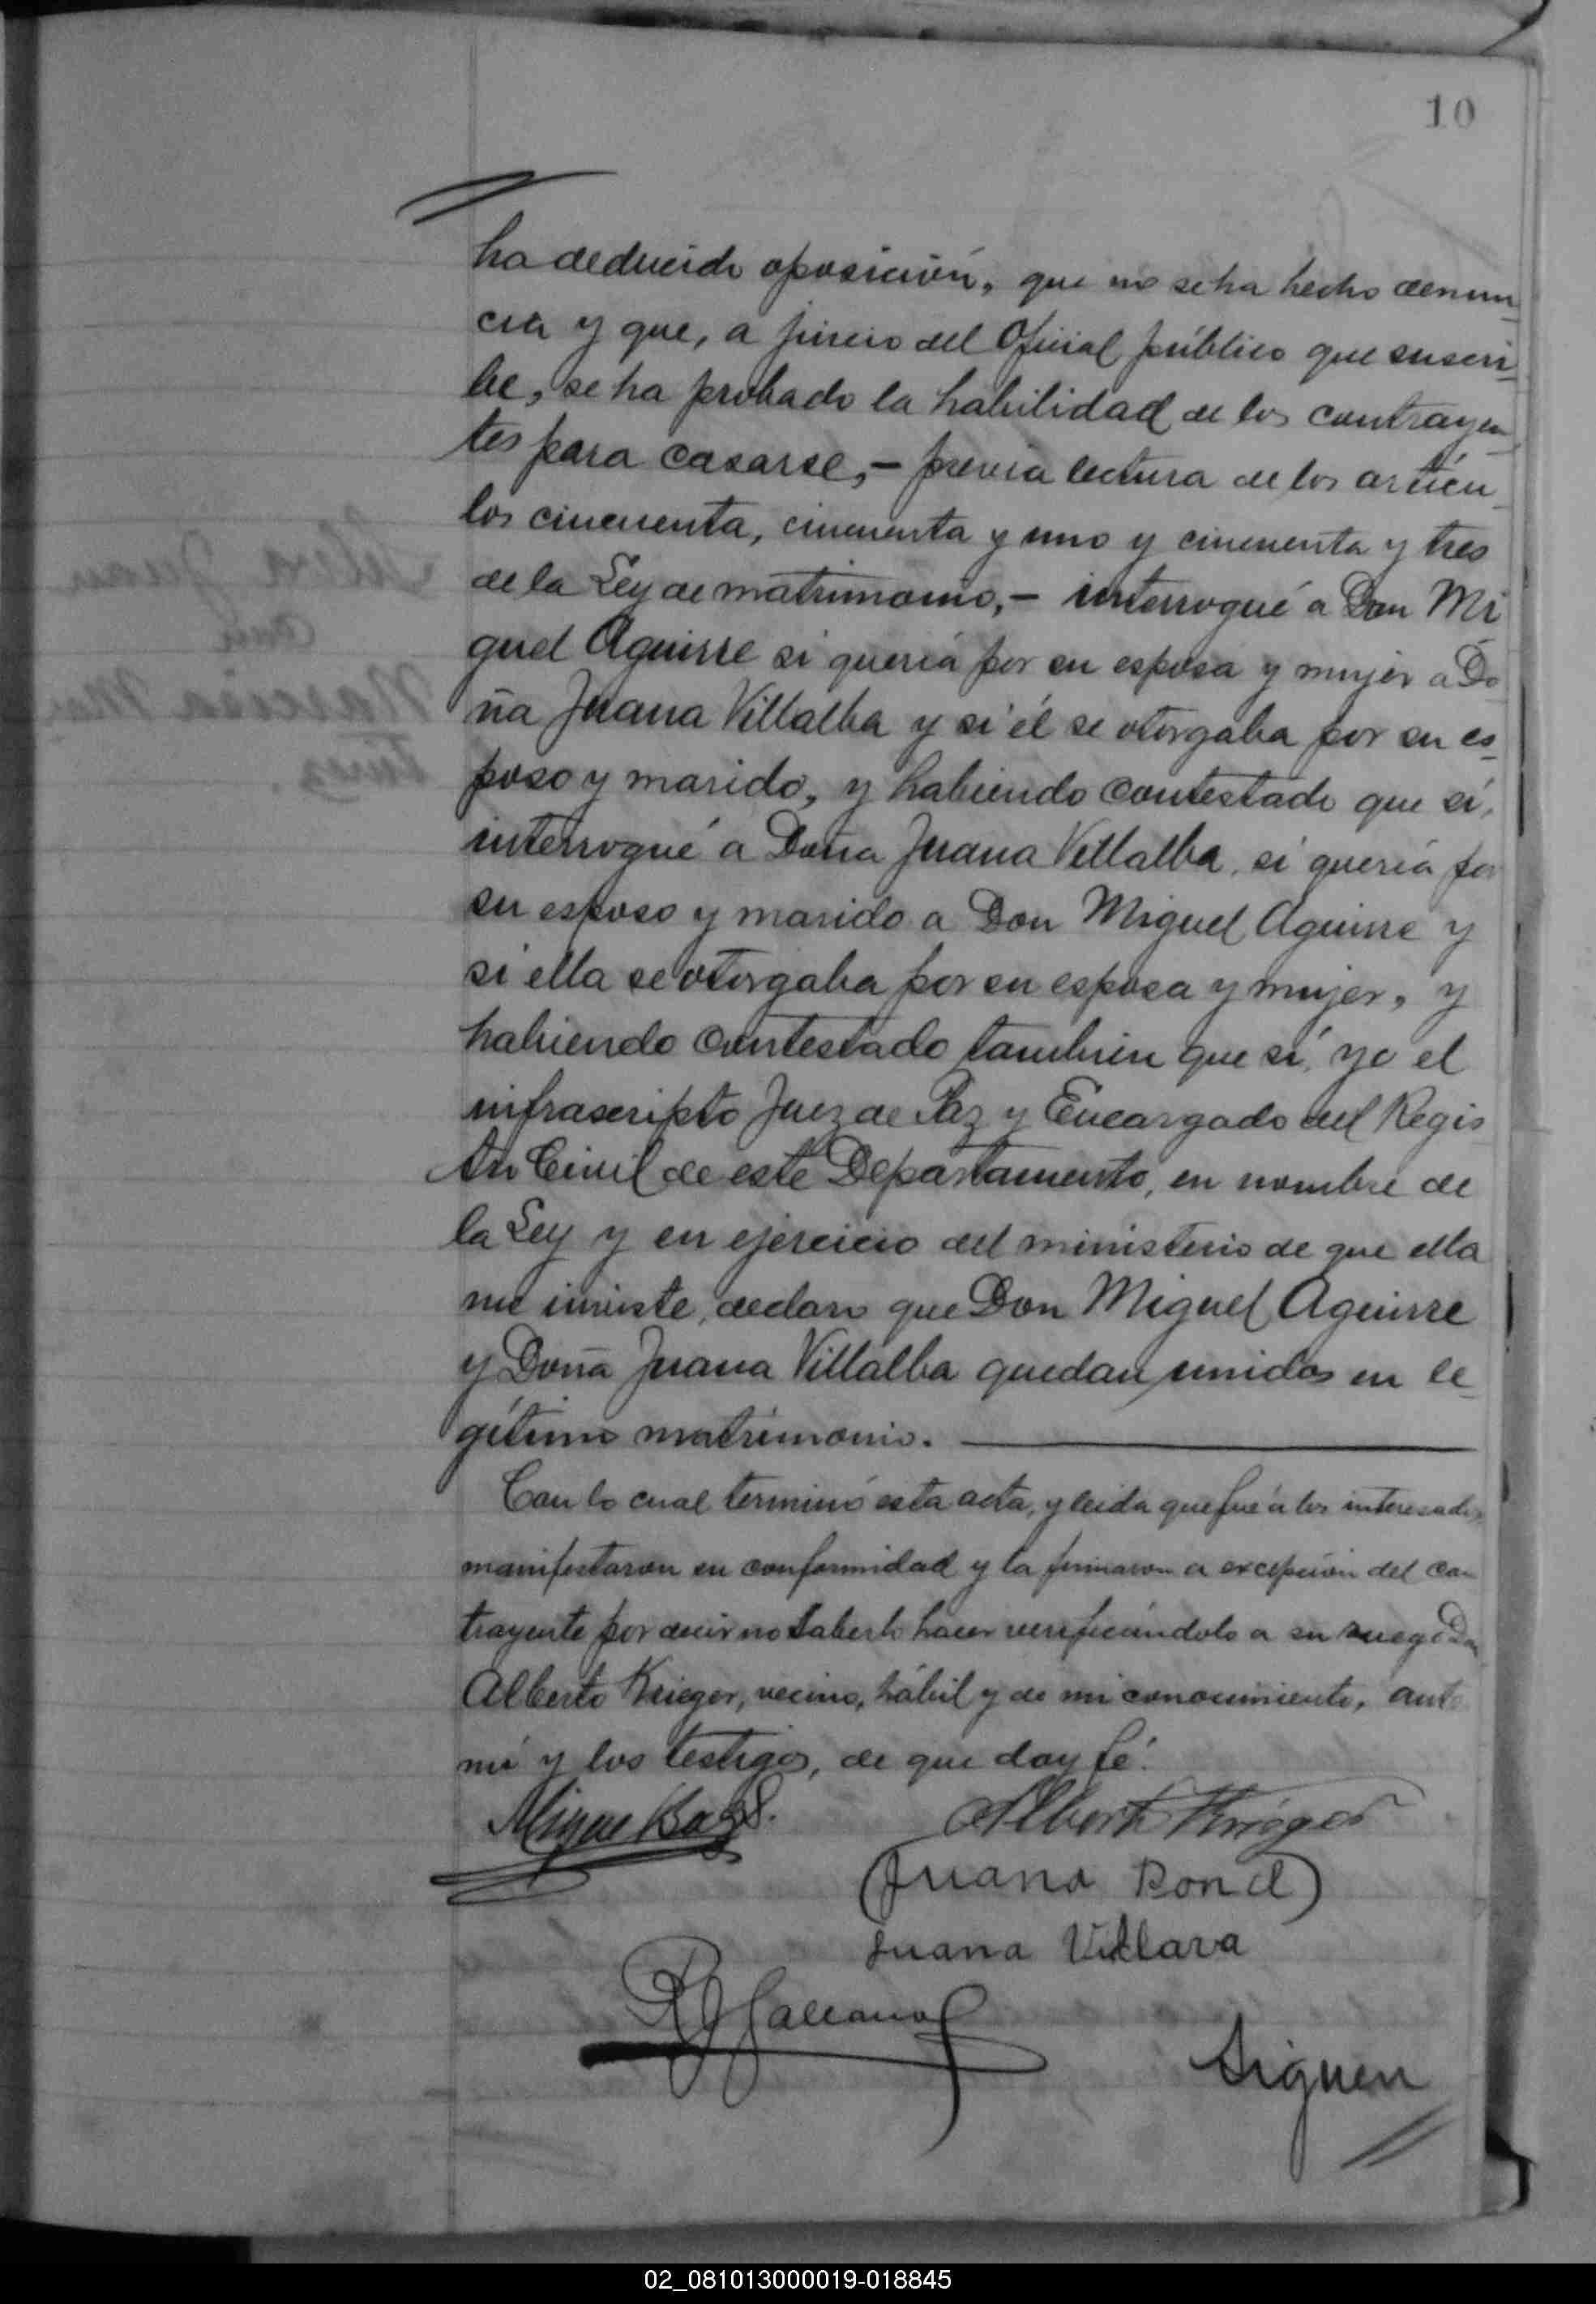 10
ha deducido oposición, que no se ha hecho denun
cia y que, a juicio del Oficial público que suscri
be, se ha probado la habilidad de los contrayen
tes para casarse,- previa lectura de los artícu
los cincuenta, cincuenta y uno y cincuenta y tres
de la Ley de matrimonio,- interrogué a Don Mi
guel Aguirre si quería por su esposa y mujer a Do
ña Juana Villalba y si él se otorgaba por su es
poso y marido, y habiendo contestado que sí,
interrogué a Doña Juana Villalba, si quería por
su esposo y marido a Don Miguel Aguirre y
si ella se otorgaba por su esposa y mujer, y
habiendo contestado tambien que sí, yo el
infrascripto Juez de Paz y Encargado del Regis
tro Civil de este Departamento, en nombre de
la Ley y en ejercicio del ministerio de que ella
me inviste, declaro que Don Miguel Aguirre
y Doña Juana Villalba quedan unidos en le
gítimo matrimonio.
Con lo cual terminó esta acta, y leida que fué a los interesados
manifestaron su conformidad y la firmaron a excepción del con
trayente por decir no saberlo hacer verificándolo a su ruego Don
Alberto Krieger, vecino, hábil y de mi conocimiento, ante
mí y los testigos, de que doy fé.
Alberto Krieger
Juana
Juana
Siguen
02_081013000019-018845